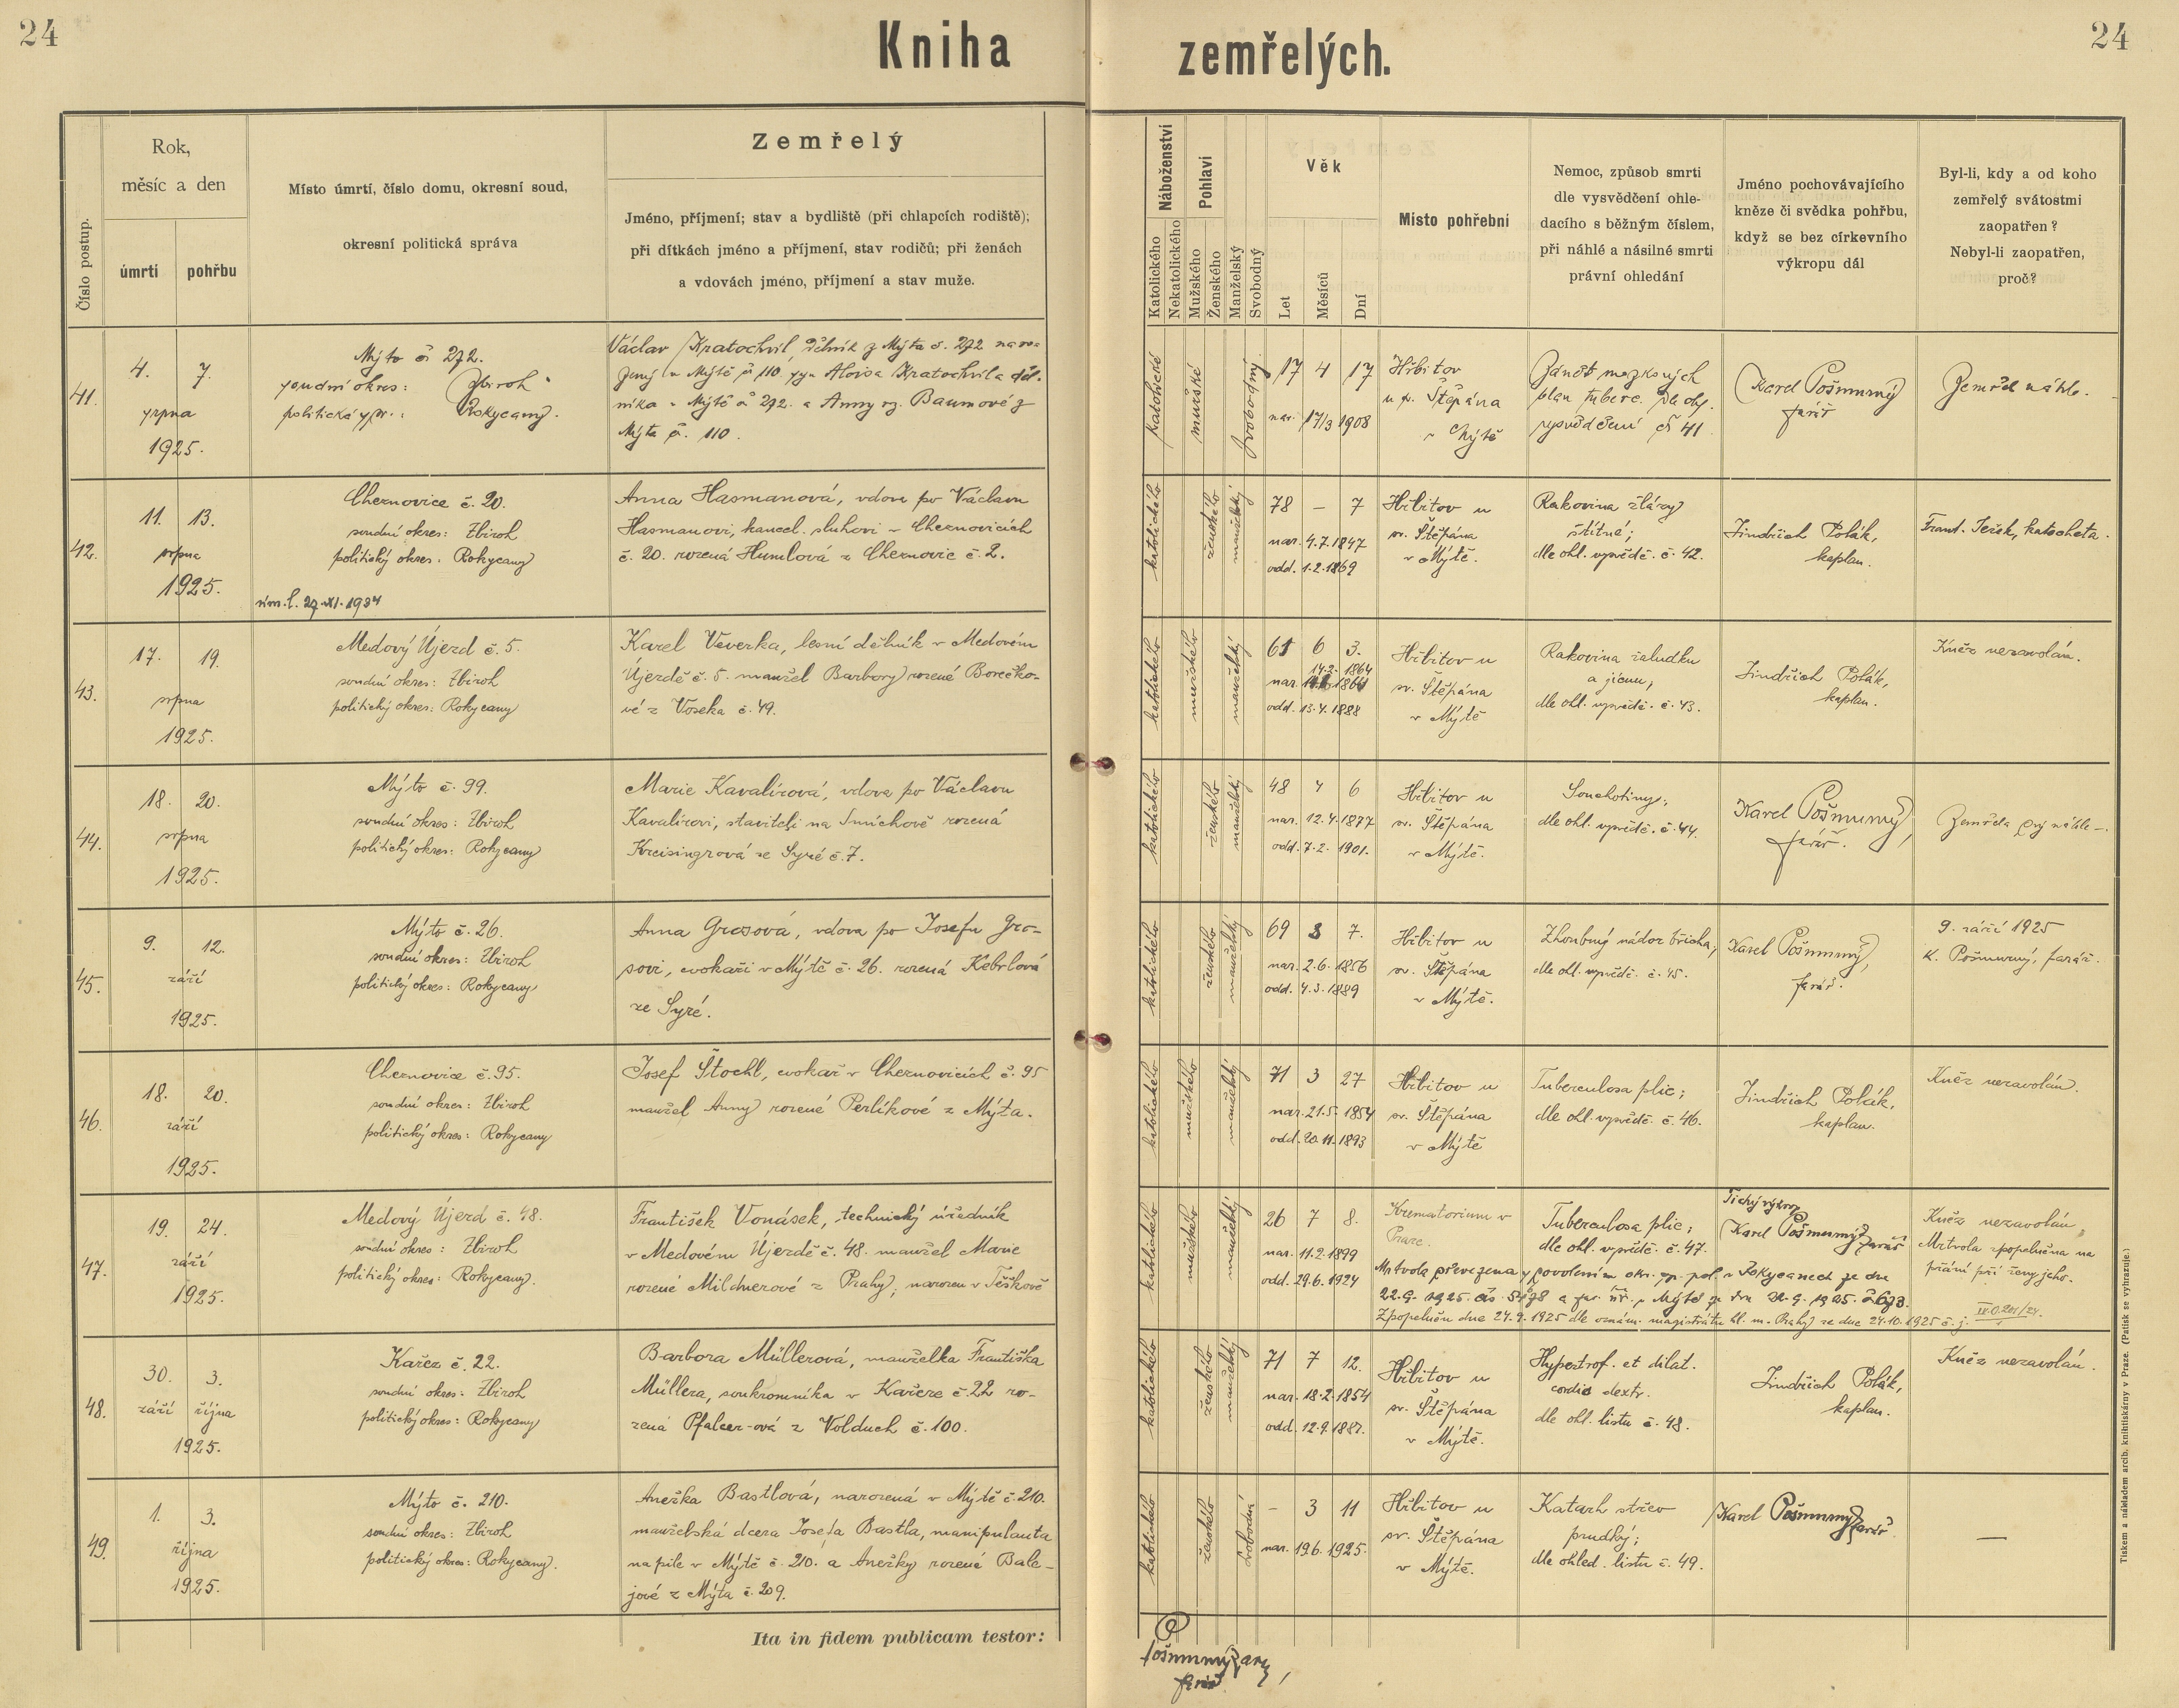 24
Kniha zemřelých.
24
Číslo postup.
Rok,
měsíc a den
úmrtí
pohřbu
Místo úmrtí, číslo domu, okresní soud,
okresní politická správa
Zemřelý
Jméno, příjmení; stav a bydliště (při chlapcích rodiště);
při dítkách jméno a příjmení, stav rodičů; při ženách
a vdovách jméno, příjmení a stav muže.
Náboženství
Katolického
Nekatolického
Pohlaví
Mužského
Ženského
Manželský
Svobodný
Věk
Let
Měsíců
Dní
Místo pohřební
Nemoc, způsob smrti
dle vysvědčení ohle-
dacího s běžným číslem,
při náhlé a násilné smrti
právní ohledání
Jméno pochovávajícího
kněze či svědka pohřbu,
když se bez církevního
výkropu dál
Byl-li, kdy a od koho
zemřelý svátostmi
zaopatřen?
Nebyl-li zaopatřen,
proč?
41.
4. 7.
srpna
1925.
Mýto č. 272.
soudní okres: Zbiroh
politická spr.: Rokycany.
Václav Kratochvíl, dělník z Mýta č. 272 naro-
zený v Mýtě č. 110 syn Aloisa Kratochvíla děl-
níka v Mýtě č. 272. a Anny roz. Baumové z
Mýta č. 110.
katolické
mužské
svobodný
17 4 17
nar. 17/3 1908
Hřbitov
u sv. Štěpána
v Mýtě
Zánět mozkových
blan tuberc. dle ohl.
vysvědčení č 41
Karel Pošmurný
farář
Zemřel náhle.
42.
11. 13.
srpna
1925.
Cheznovice č. 20.
soudní okres: Zbiroh
politický okres: Rokycany
29. XI. 1934
Anna Hasmanová, vdova po Václavu
Hasmanovi, kancel. sluhovi v Cheznovicích
č. 20. rozená Humlová z Cheznovic č. 2.
katolického
ženského
manželský
78 – 7
nar. 4.7.1847
odd. 1.2.1869
Hřbitov u
sv. Štěpána
v Mýtě.
Rakovina žlázy
štítné;
dle ohl. vysvědč. č. 42.
Jindřich Polák,
kaplan.
Frant. Ježek, katecheta.
43.
17. 19.
srpna
1925.
Medový Újezd č. 5.
soudní okres: Zbiroh
politický okres: Rokycany
Karel Veverka, lesní dělník v Medovém
Újezdě č. 5. manžel Barbory rozené Borečko-
vé z Voseka č. 49.
katolického
mužského
manželský
61 6 3.
14.2. 1864
nar. 1864
odd. 13.4.1888
Hřbitov u
sv. Štěpána
v Mýtě
Rakovina žaludku
a jícnu;
dle ohl. vysvědč. č. 43.
Jindřich Polák,
kaplan.
Kněz nezavolán.
44.
18. 20.
srpna
1925.
Mýto č. 99.
soudní okres: Zbiroh
politický okres: Rokycany
Marie Kavalírová, vdova po Václavu
Kavalírovi, staviteli na Smíchově rozená
Kreisingrová ze Syré č. 7.
katolického
ženského
manželský
48 4 6
nar. 12.4.1877
odd. 7.2. 1901.
Hřbitov u
sv. Štěpána
v Mýtě.
Souchotiny;
dle ohl. vysvědč. č. 44.
Karel Pošmurný,
farář.
Zemřela prý náhle –.
45.
9. 12.
září
1925.
Mýto č. 26.
soudní okres: Zbiroh
politický okres: Rokycany
Anna Grosová, vdova po Josefu Gro-
sovi, cvokaři v Mýtě č. 26. rozená Kebrlová
ze Syré.
katolického
ženského
manželský
69 3 7.
nar. 2.6.1856
odd. 4.3.1889
Hřbitov u
sv. Štěpána
v Mýtě.
Zhoubný nádor břicha;
dle ohl. vysvědč. č. 45.
Karel Pošmurný,
farář.
9. září 1925
K. Pošmurný, farář.
46.
18. 20.
září
1925.
Cheznovice č. 95.
soudní okres: Zbiroh
politický okres: Rokycany
Josef Štochl, cvokař v Cheznovicích č. 95
manžel Anny rozené Perlíkové z Mýta.
katolického
mužského
manželský
71 3 27
nar. 21.5. 1854
odd. 20.11.1893
Hřbitov u
sv. Štěpána
v Mýtě
Tuberculosa plic;
dle ohl. vysvědč. č. 46.
Jindřich Polák,
kaplan.
Kněz nezavolán.
47.
19. 24.
září
1925.
Medový Újezd č. 48.
soudní okres: Zbiroh
politický okres: Rokycany.
František Vonásek, technický úředník
v Medovém Újezdě č. 48. manžel Marie
rozené Mildnerové z Prahy, narozen v Těškově
katolického
mužského
manželský
26 7 8.
nar. 11.2.1899
odd. 29.6.1924
Krematorium v
Praze.
Tuberculosa plic;
dle ohl. vysvědč. č. 47.
Tichý výkrop
Karel Pošmurný farář
Kněz nezavolán,
Mrtvola zpopelněna na
přání prý ženy jeho.
Mrtvola převezena s povolením okr. sp. pol. v Rokycanech ze dne
22.9. 1925 a far. úř. v Mýtě ze dne
Zpopelněn dne 24.9.1925 dle oznám. magistrátu hl. m. Prahy ze dne 24.10.1925 č. j.
48.
30. 3.
září října
1925.
Kařez č. 22.
soudní okres: Zbiroh
politický okres: Rokycany
Barbora Müllerová, manželka Františka
Müllera, soukromníka v Kařeze č 22 ro-
zená Pfalcer-ová z Volduch č. 100.
katolického
ženského
manželský
71 7 12.
nar. 18.2.1854
odd. 12.9.1882.
Hřbitov u
sv. Štěpána
v Mýtě.
Hypertrof. et dilat.
cordis dextr.
dle ohl. listu č. 48.
Jindřich Polák,
kaplan.
Kněz nezavolán.
49.
1. 3.
října
1925.
Mýto č. 210.
soudní okres: Zbiroh
politický okres: Rokycany.
Anežka Bastlová, narozená v Mýtě č. 210.
manželská dcera Josefa Bastla, manipulanta
na pile v Mýtě č. 210. a Anežky rozené Bale-
jové z Mýta č. 209.
katolického
ženského
svobodná
– 3 11
nar. 19.6.1925.
Hřbitov u
sv. Štěpána
v Mýtě.
Katarh střev
prudký;
dle ohled. listu č. 49.
Karel Pošmurný farář
—
Ita in fidem publicam testor:
Pošmurný
farář
Tiskem a nákladem arcib. knihtiskárny v Praze. (Patisk se vyhrazuje.)